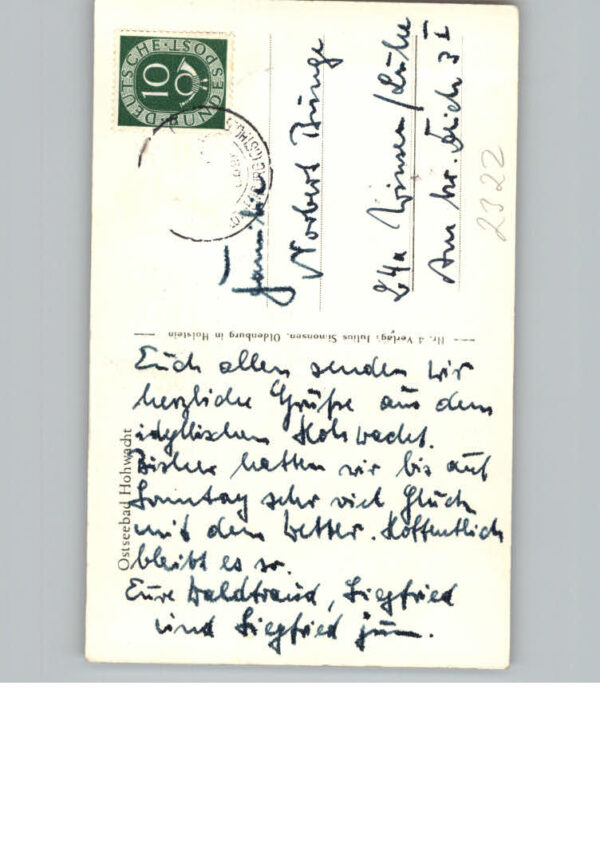 DEUTSCHE·POST·BUNDESPOST
10
Familie
Norbert Bunge
24a Winsen/Luhe
Am kr. Deich 3 I
2322
Nr. 4 Verlag: Julius Simonsen, Oldenburg in Holstein
Ostseebad Hohwacht
Euch allen senden wir
herzliche Grüße aus dem
idyllischen Hohwacht.
Bisher hatten wir bis auf
Sonntag sehr viel Glück
mit dem Wetter. Hoffentlich
bleibt es so.
Eure Waldtraud, Siegfried
und Siegfried jun.